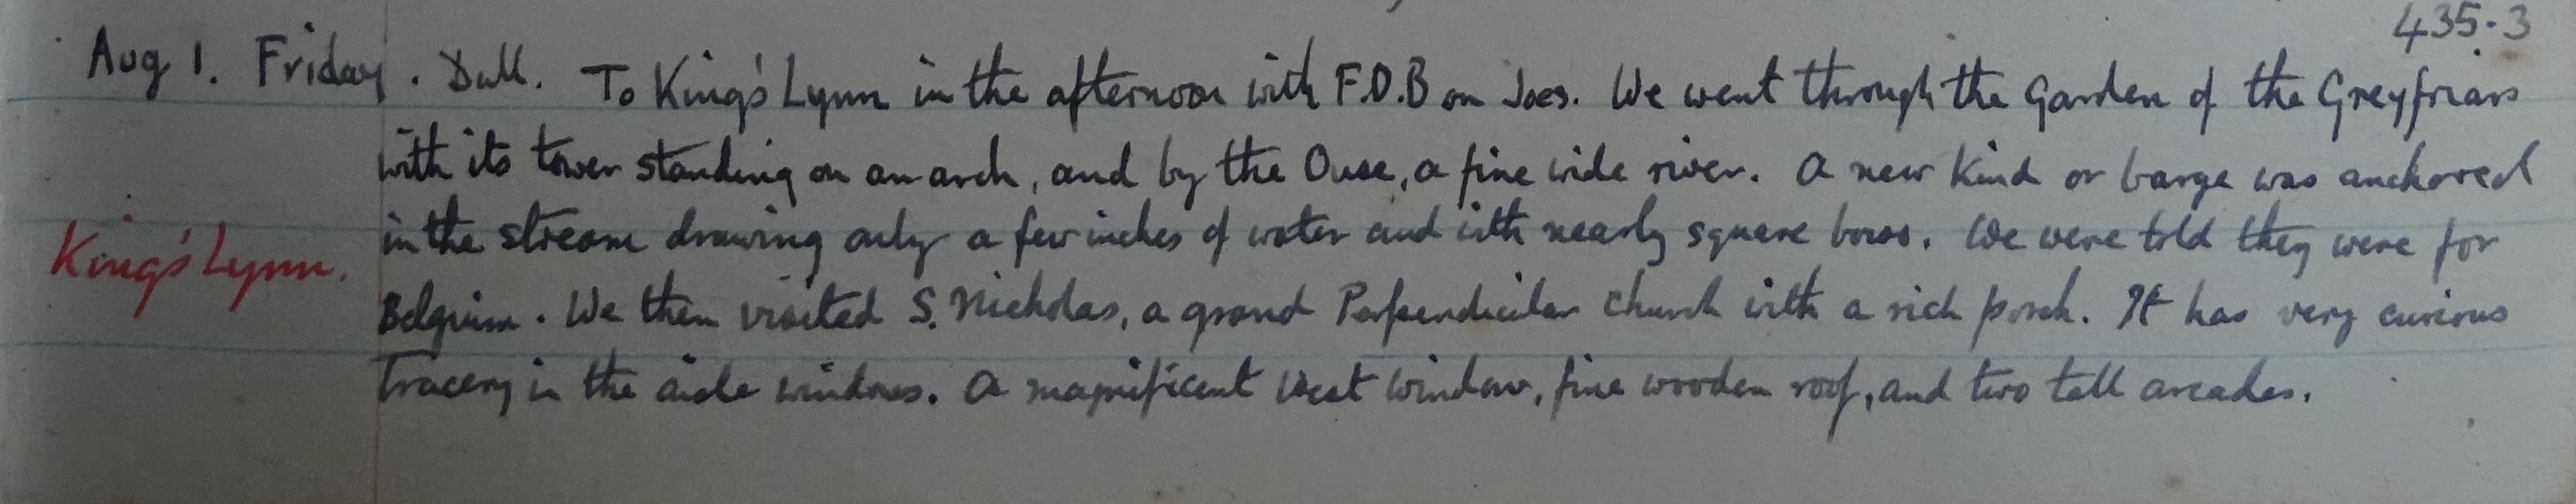 435.3
Aug 1. Friday. Dull. To King's Lynn in the afternoon with F.D.B on Joes. We went through the Garden of the Greyfriars
with its tower standing on an arch, and by the Ouse, a fine wide river. A new kind or barge was anchored
in the stream drawing only a few inches of water and with nearly square bows. We were told they were for
King's Lynn.
Belgium. We then visited S. Nicholas, a grand Perpendicular church with a rich porch. It has very curious
tracery in the aisle windows. A magnificent West window, fine wooden roof, and two tall arcades.